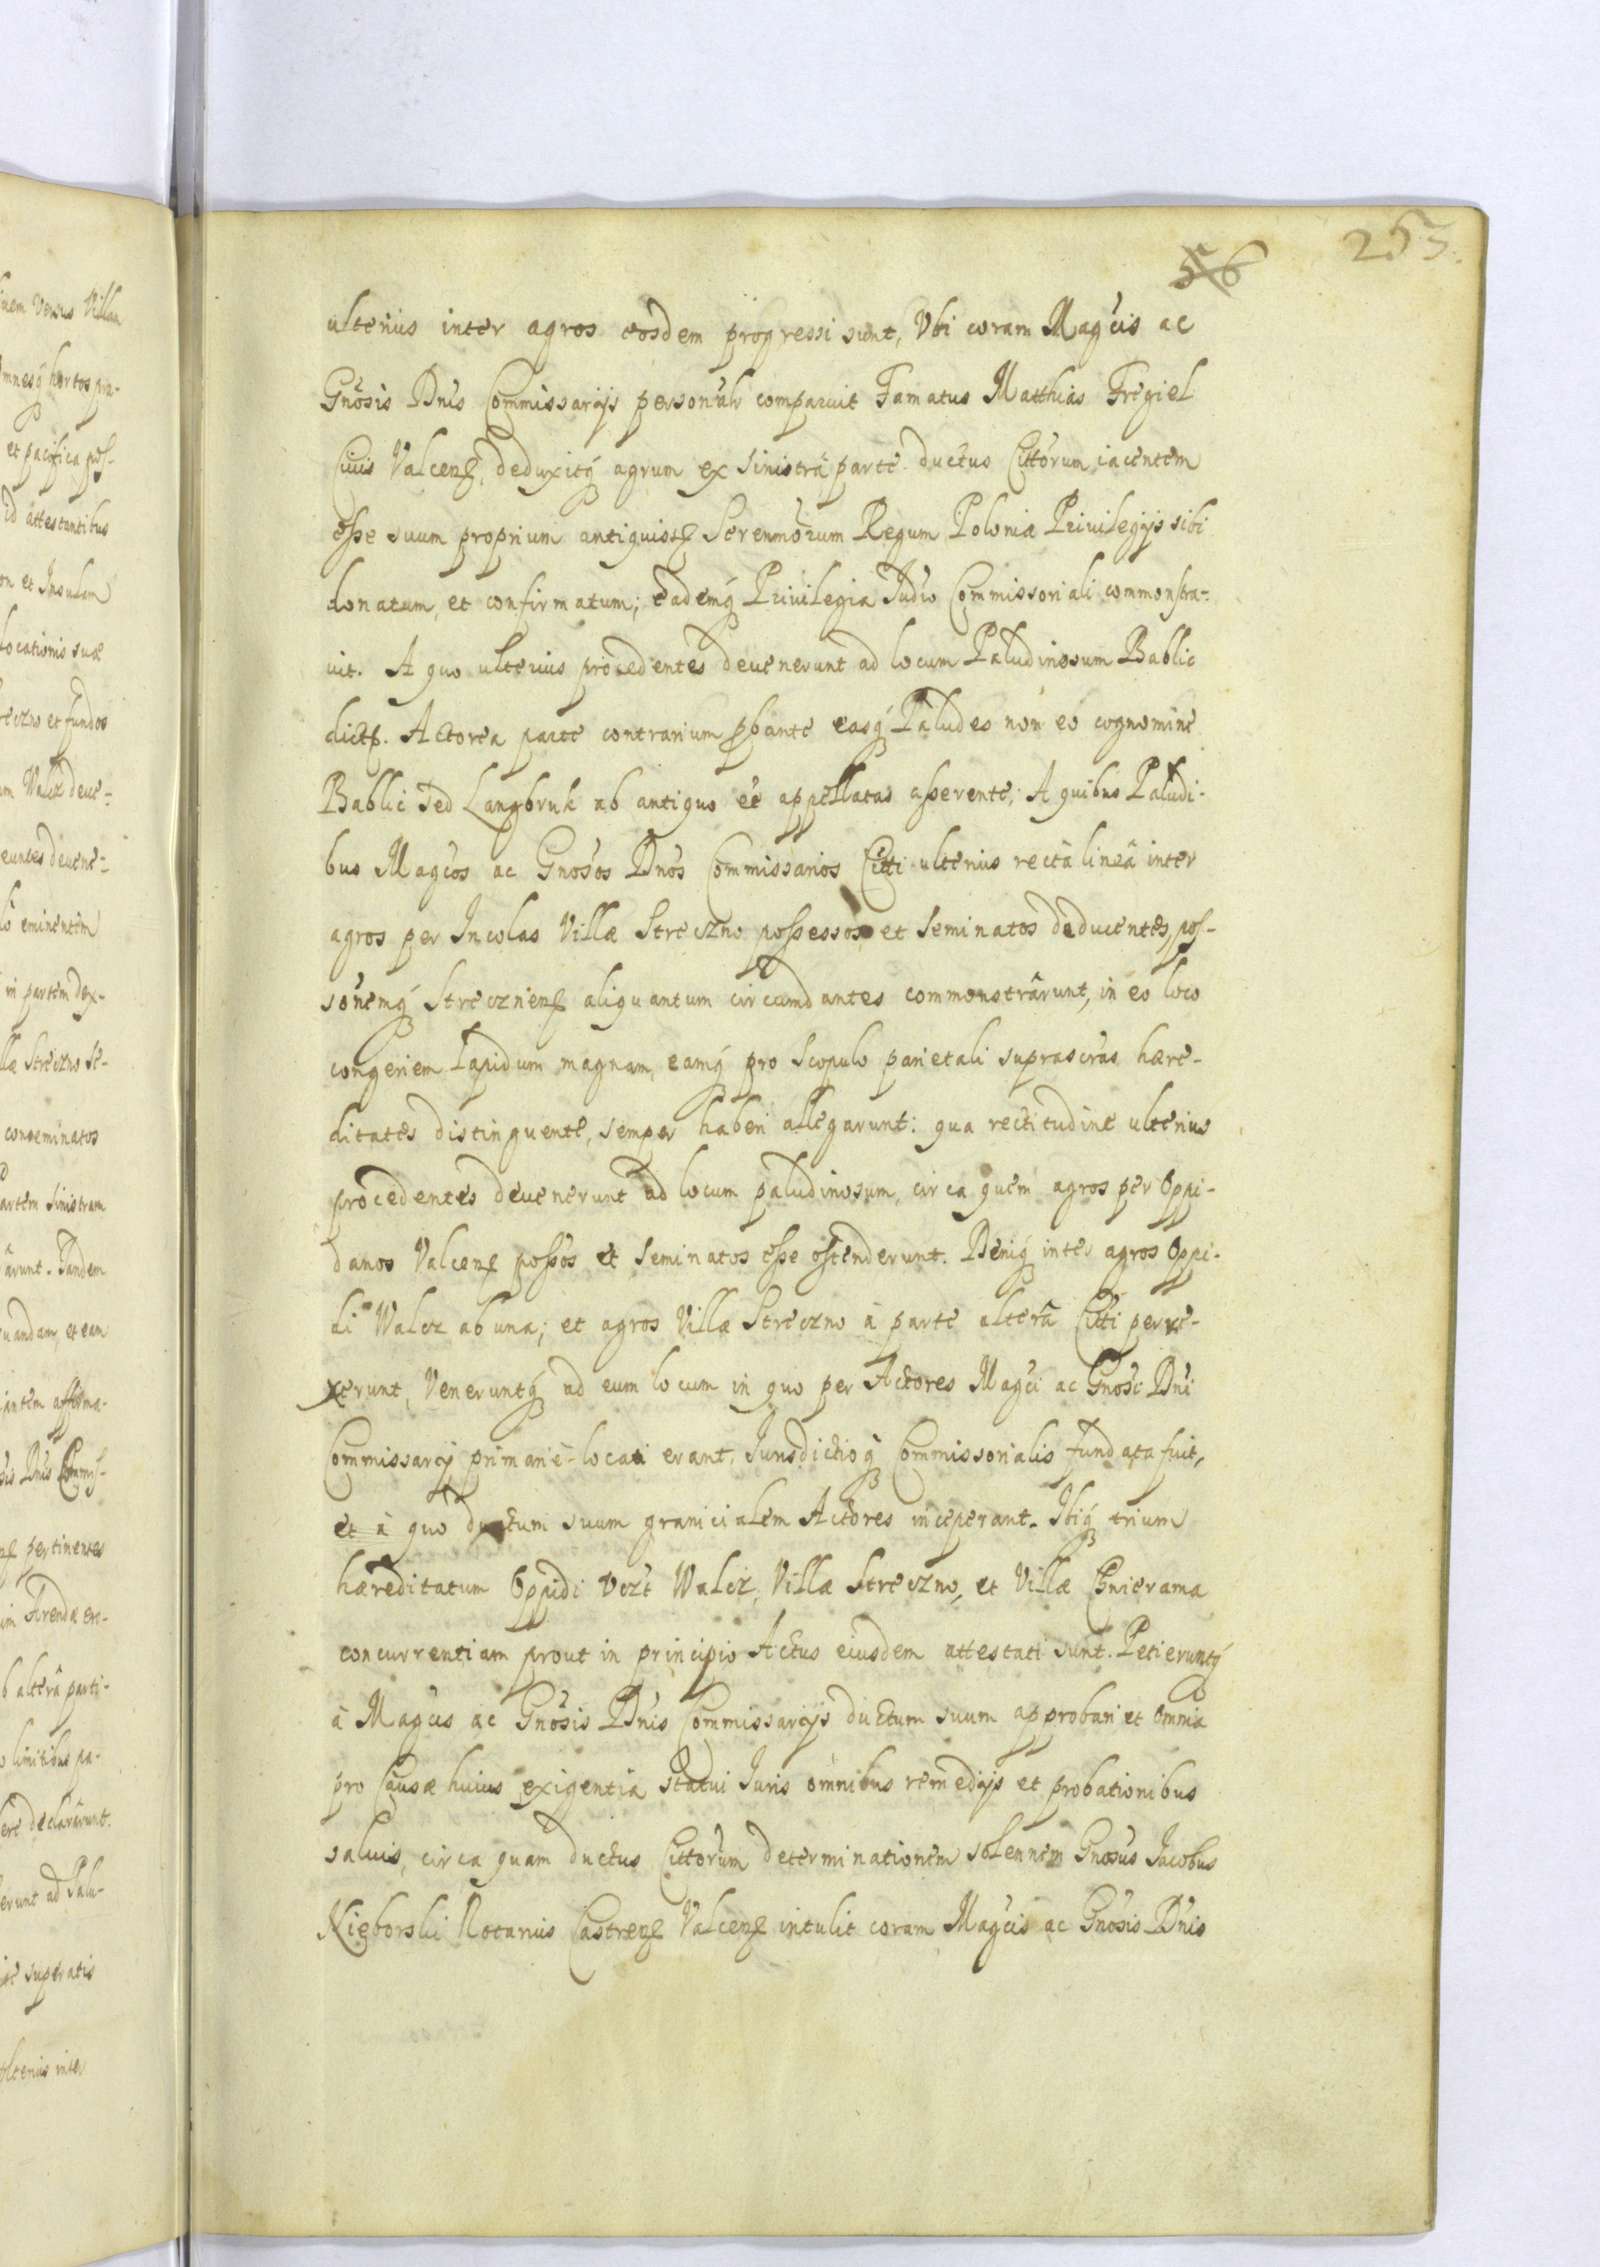 253.
56
ulterius inter agros eosdem progressi sunt, Vbi coram Magcis ac
Gnosis Dnis Commissarijs personalr comparuit Famatus Matthias Fregiel
Ciuis Valcens, deduxitq agrum ex sinistra parte ductus Cittorum iacentem
esse suum proprium antiquiss Serenmorum Regum Poloniæ Priuilegijs sibi
donatum, et confirmatum; eademq Priuilegia Judio Commissoriali commonstra-
uit. A quo ulterius procedentes deuenerunt ad locum Paludinosum Bablic
dict. Actorea parte contrarium pbante easq Paludes non eo cognomine
Bablic sed Langbruk ab antiquo ee appellatas asserente; A quibus Paludi-
bus Magcos ac Gnosos Dnos Commissarios Citti ulterius rectâ lineâ inter
agros per Incolas Villæ Streczno possessos et seminatos deducentes, pos-
sonemq Streczniens aliquantum circumdantes commonstrârunt, in eo loco
congeriem lapidum magnam, eamq pro Scopulo parietali suprascras hære-
ditates distinguente, semper haberi allegarunt: qua rectitudine ulterius
procedentes deuenerunt ad locum paludinosum, circa quem agros per Oppi-
danos Valcens possos et seminatos esse ostenderunt. Deniq inter agros Oppi-
di Walcz ab una; et agros Villæ Streczno à parte alterâ Citti perre-
xerunt, Veneruntq ad eum locum in quo per Actores Magci ac Gnosi Dni
Commissarij primariè locati erant, Jurisdictioq Commissorialis fundata fuit,
et à quo ductum suum granicialem Actores inceperant. Ibiq trium
hæreditatum Oppidi Walcz, Villæ Streczno, et Villæ Chierama
concurrentiam prout in principio Actus eiusdem attestati sunt. Petieruntq
à Magcis ac Gnosis Dnis Commissarijs ductum suum approbari et omnia
pro Causæ huius exigentia statui Juris omnibus remedijs et probationibus
saluis, circa quam ductus Cittorum determinationem solennem Gnosus Jacobus
Nieborski Notarius Castrens Valcens intulit coram Magcis ac Gnosis Dnis